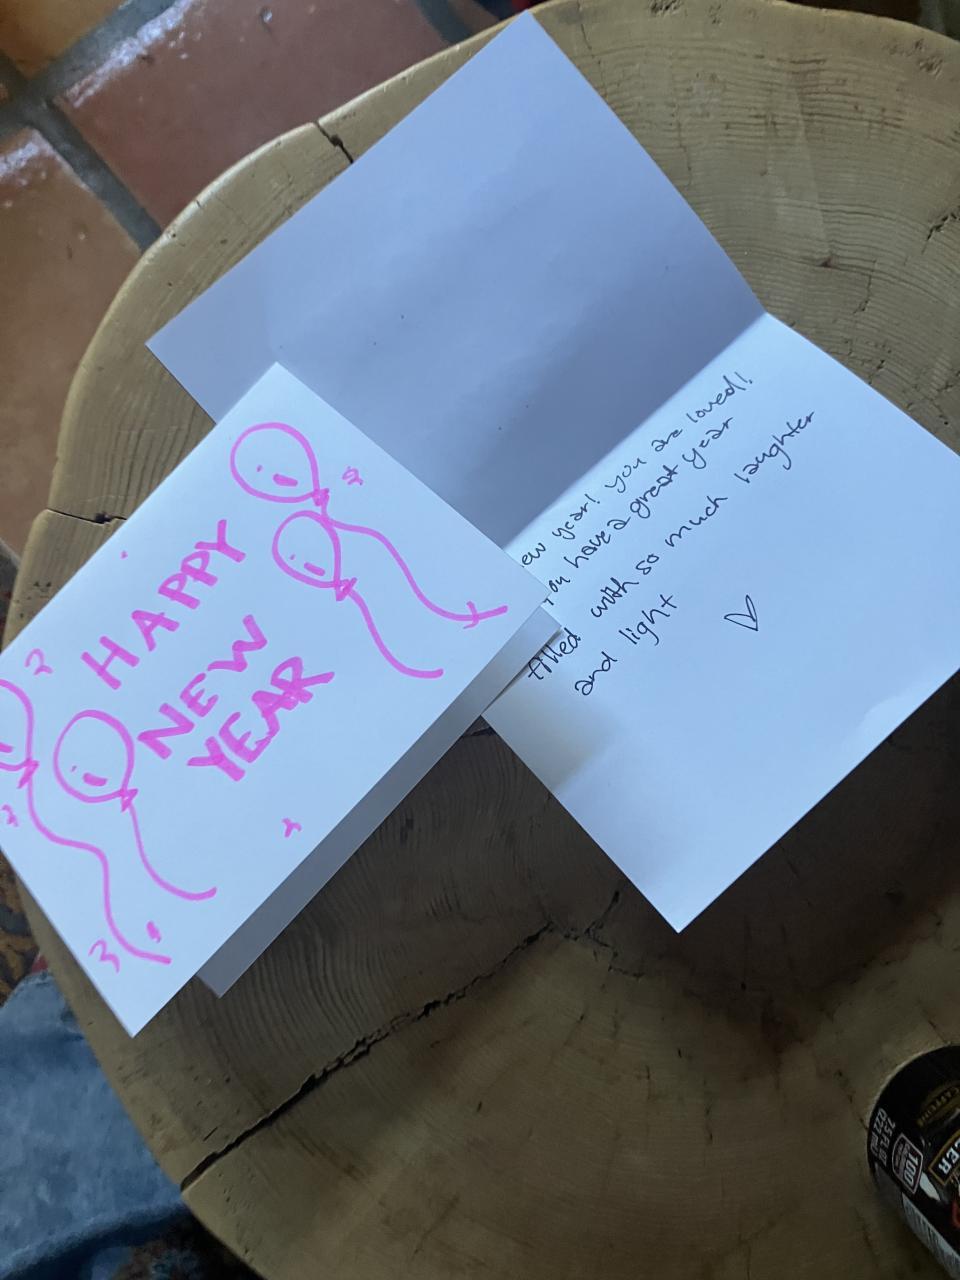 HAPPY
NEW
YEAR
ew year! you are loved!
you have a great year
filled with so much laughter
and light
CAFFEINE
7.5 FL OZ
100